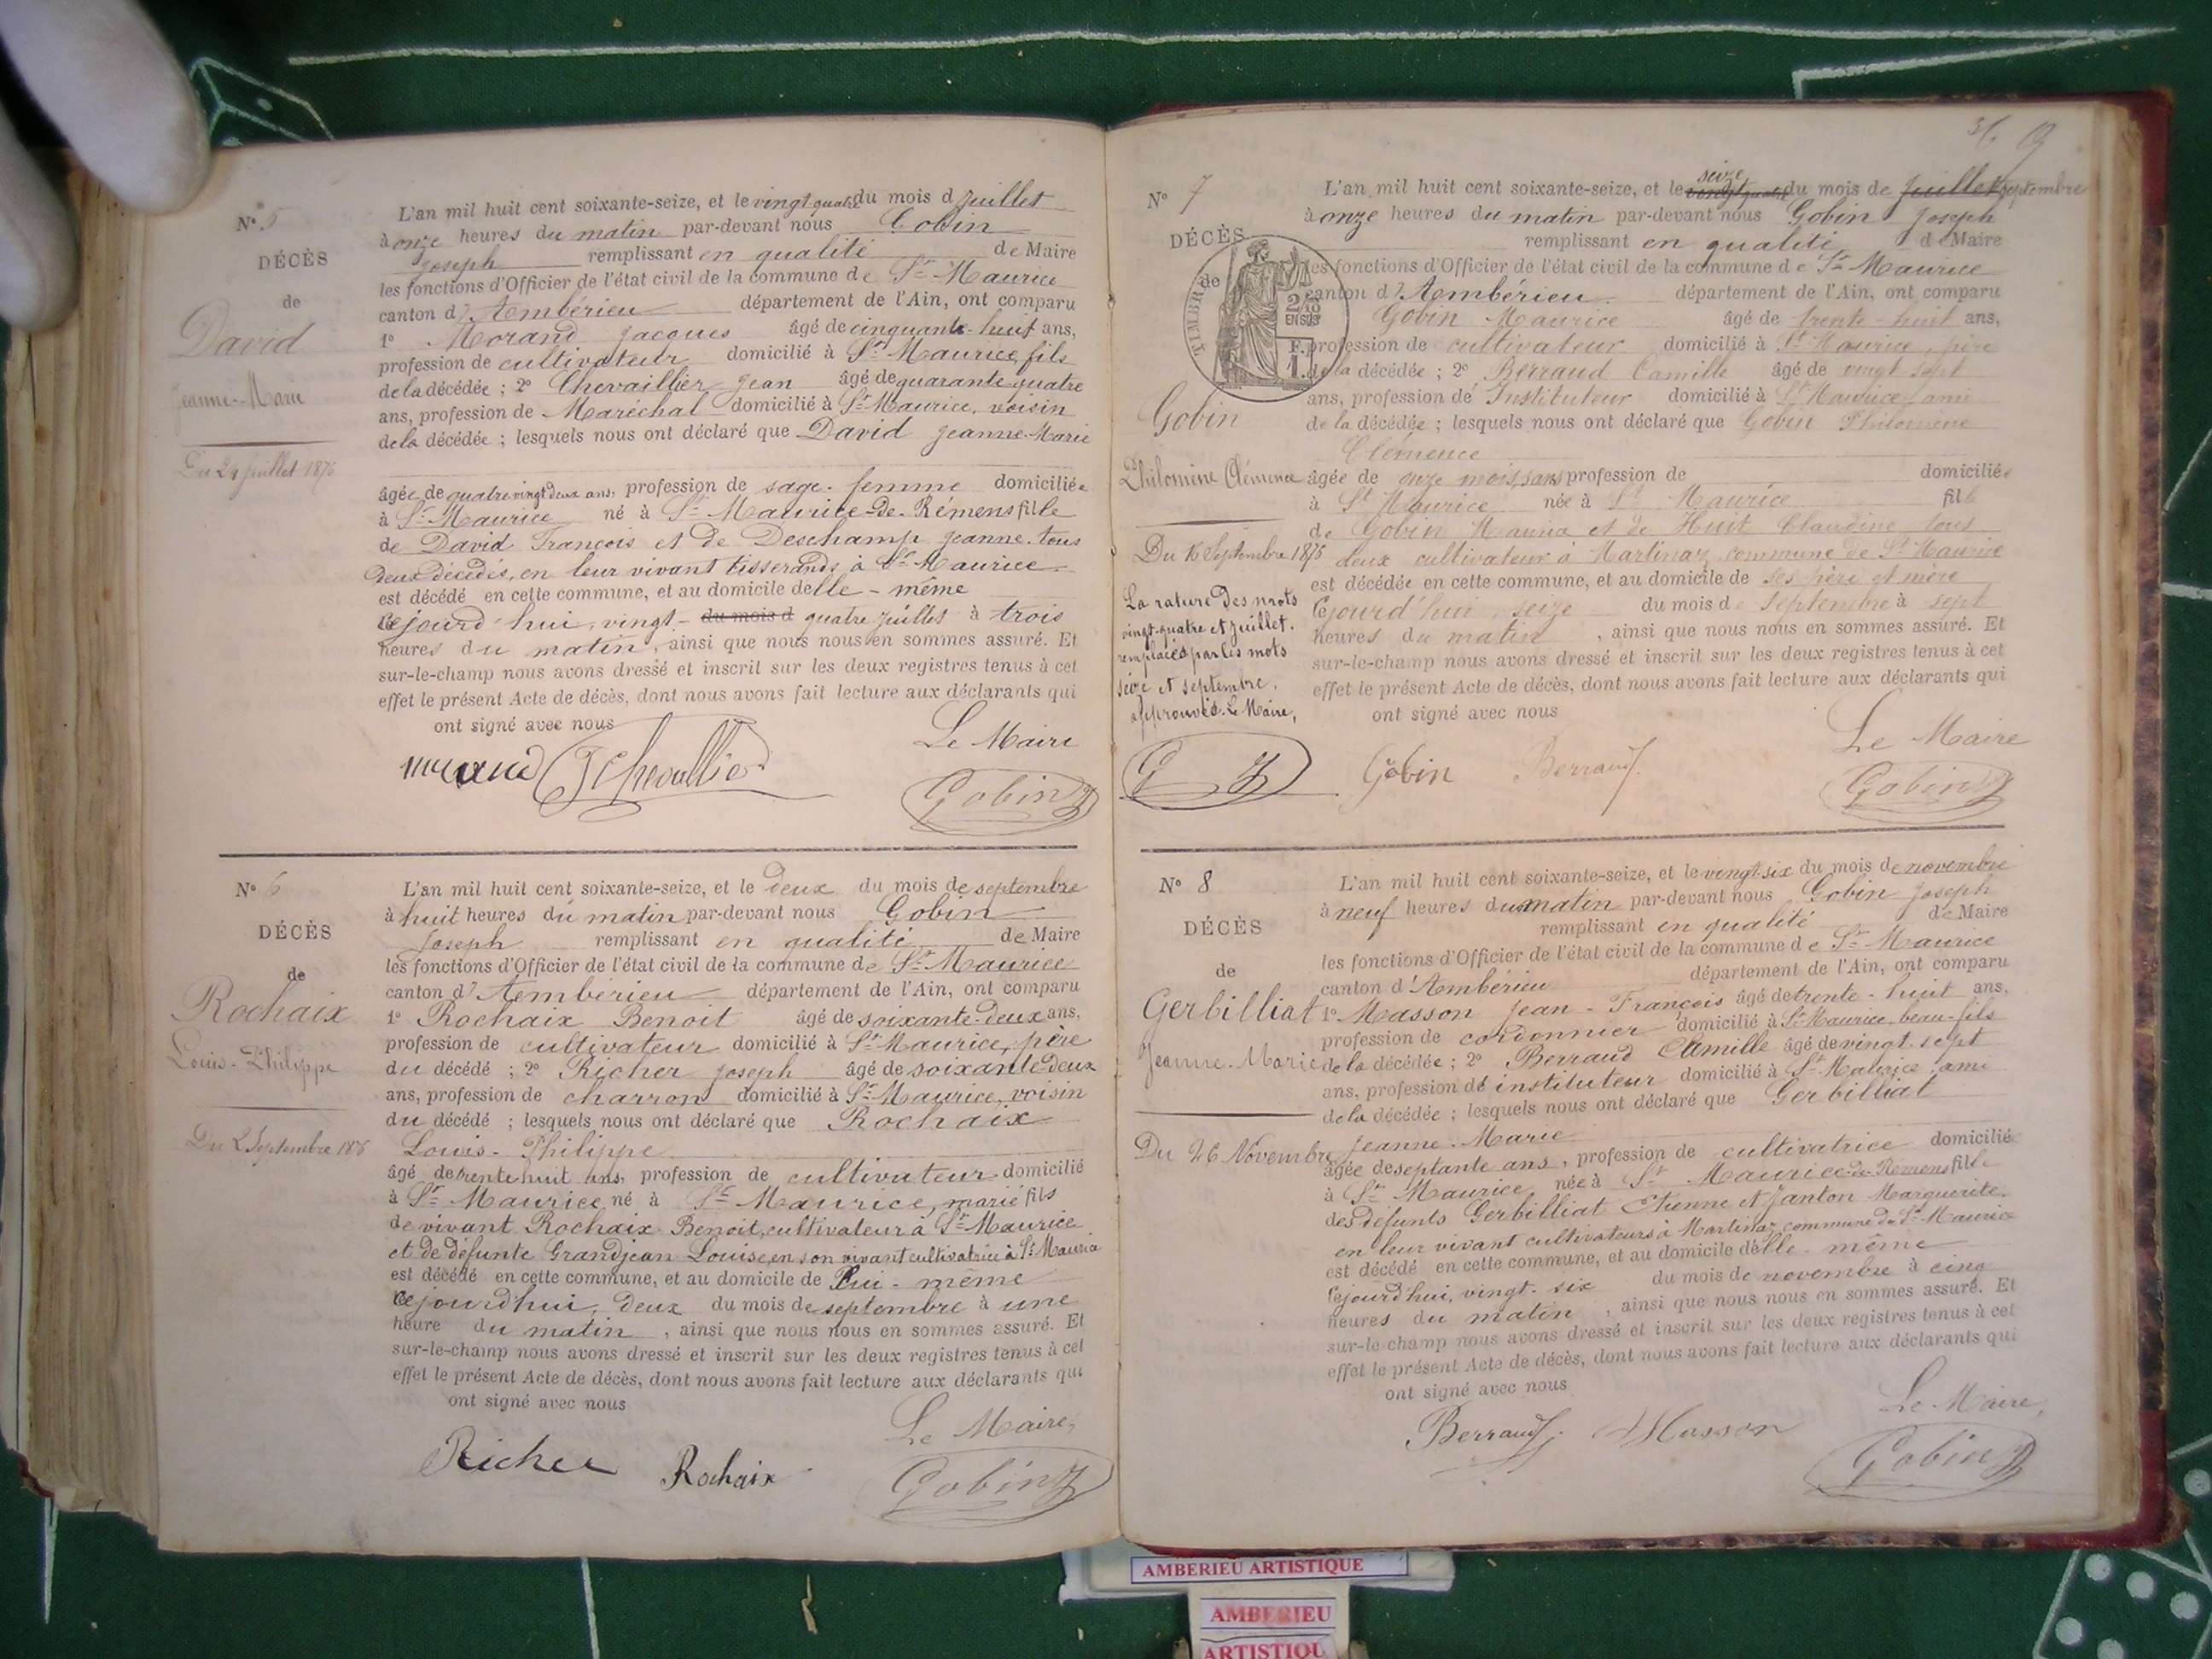 N° 5
DÉCÈS
de
David
Jeanne-Marie
Du 24 Juillet 1876
L'an mil huit cent soixante-seize, et le vingt quatre du mois d Juillet
à onze heures du matin par-devant nous Gobin
Joseph remplissant en qualité de Maire
les fonctions d'Officier de l'état civil de la commune de St-Maurice
canton d'Ambérieu département de l'Ain, ont comparu
1° Morand Jacques âgé de cinquante-huit ans,
profession de cultivateur domicilié à St-Maurice, fils
de la décédée ; 2° Chevaillier Jean âgé de quarante quatre
ans, profession de Maréchal domicilié à St-Maurice, voisin
de la décédée ; lesquels nous ont déclaré que David Jeanne-Marie
âgée de quatre vingt deux ans, profession de sage-femme domiciliée
à St-Maurice né à St-Maurice-de-Rémens fille
de David François et de Deschamp Jeanne. tous
deux décédés, en leur vivant tisserands à St-Maurice
est décédé en cette commune, et au domicile d'elle-même
Cejourd'hui, vingt- du mois d quatre juillet à trois
heures du matin, ainsi que nous nous en sommes assuré. Et
sur-le-champ nous avons dressé et inscrit sur les deux registres tenus à cet
effet le présent Acte de décès, dont nous avons fait lecture aux déclarants qui
ont signé avec nous
Le Maire
Morand J Chevallier
Gobin J
N° 6
DÉCÈS
de
Rochaix
Louis-Philippe
Du 2 Septembre 1876
L'an mil huit cent soixante-seize, et le deux du mois de septembre
à huit heures du matin par-devant nous Gobin
Joseph remplissant en qualité de Maire
les fonctions d'Officier de l'état civil de la commune de St-Maurice
canton d'Ambérieu département de l'Ain, ont comparu
1° Rochaix Benoit âgé de soixante-deux ans,
profession de cultivateur domicilié à St-Maurice, père
du décédé ; 2° Richer Joseph âgé de soixante-deux
ans, profession de charron domicilié à St-Maurice, voisin
du décédé ; lesquels nous ont déclaré que Rochaix
Louis-Philippe
âgé de trente huit ans, profession de cultivateur domicilié
à St-Maurice né à St-Maurice, marié fils
de vivant Rochaix Benoit, cultivateur à St-Maurice
et de défunte Grandjean Louise, en son vivant cultivatrice à St-Maurice
est décédé en cette commune, et au domicile de lui-même
Cejourd'hui, deux du mois de septembre à une
heure du matin, ainsi que nous nous en sommes assuré. Et
sur-le-champ nous avons dressé et inscrit sur les deux registres tenus à cet
effet le présent Acte de décès, dont nous avons fait lecture aux déclarants qui
ont signé avec nous
Le Maire,
Richer Rochaix
Gobin J
N° 7
DÉCÈS
de
TIMBRE
2/10
EN SUS
F.
1.
Gobin
Philomène Clémence
Du 16 Septembre 1876
La rature des mots
vingt-quatre et juillet.
remplacés par les mots
seize et septembre.
approuvés. Le Maire,
G J
L'an mil huit cent soixante-seize, et le vingt quatre seize du mois de juillet septembre
à onze heures du matin par-devant nous Gobin Joseph
remplissant en qualité de Maire
les fonctions d'Officier de l'état civil de la commune de St-Maurice
canton d'Ambérieu département de l'Ain, ont comparu
Gobin Maurice âgé de trente-huit ans,
profession de cultivateur domicilié à St Maurice, père
de la décédée ; 2° Berraud Camille âgé de vingt sept
ans, profession de Instituteur domicilié à St Maurice ami
de la décédée ; lesquels nous ont déclaré que Gobin Philomène
Clémence
âgée de onze mois, sans profession de domiciliée
à St Maurice née à St Maurice fille
de Gobin Maurice et de Huit Claudine tous
deux cultivateur à Martinaz commune de St Maurice
est décédée en cette commune, et au domicile de ses père et mère
Cejourd'hui seize du mois de Septembre à sept
heures du matin, ainsi que nous nous en sommes assuré. Et
sur-le-champ nous avons dressé et inscrit sur les deux registres tenus à cet
effet le présent Acte de décès, dont nous avons fait lecture aux déclarants qui
ont signé avec nous
Le Maire
Gobin Berraud
Gobin J
N° 8
DÉCÈS
de
Gerbilliat
Jeanne-Marie
Du 26 Novembre
L'an mil huit cent soixante-seize, et le vingt-six du mois de novembre
à neuf heures du matin par-devant nous Gobin Joseph
remplissant en qualité de Maire
les fonctions d'Officier de l'état civil de la commune de St-Maurice
canton d'Ambérieu département de l'Ain, ont comparu
1° Masson Jean-François âgé de trente-huit ans,
profession de cordonnier domicilié à St-Maurice, beau-fils
de la décédée ; 2° Berraud Camille âgé de vingt-sept
ans, profession de instituteur domicilié à St-Maurice ami
de la décédée ; lesquels nous ont déclaré que Gerbilliat
Jeanne-Marie
âgée de septante ans, profession de cultivatrice domicilié
à St-Maurice née à St Maurice-de-Rémens fille
des défunts Gerbilliat Etienne et Janton Marguerite.
en leur vivant cultivateurs à Martinaz commune de St-Maurice
est décédé en cette commune, et au domicile d'elle-même
Cejourd'hui, vingt-six du mois de novembre à cinq
heures du matin, ainsi que nous nous en sommes assuré. Et
sur-le-champ nous avons dressé et inscrit sur les deux registres tenus à cet
effet le présent Acte de décès, dont nous avons fait lecture aux déclarants qui
ont signé avec nous
Le Maire,
Berraud Masson
Gobin J
AMBERIEU ARTISTIQUE
AMBERIEU
ARTISTIQU